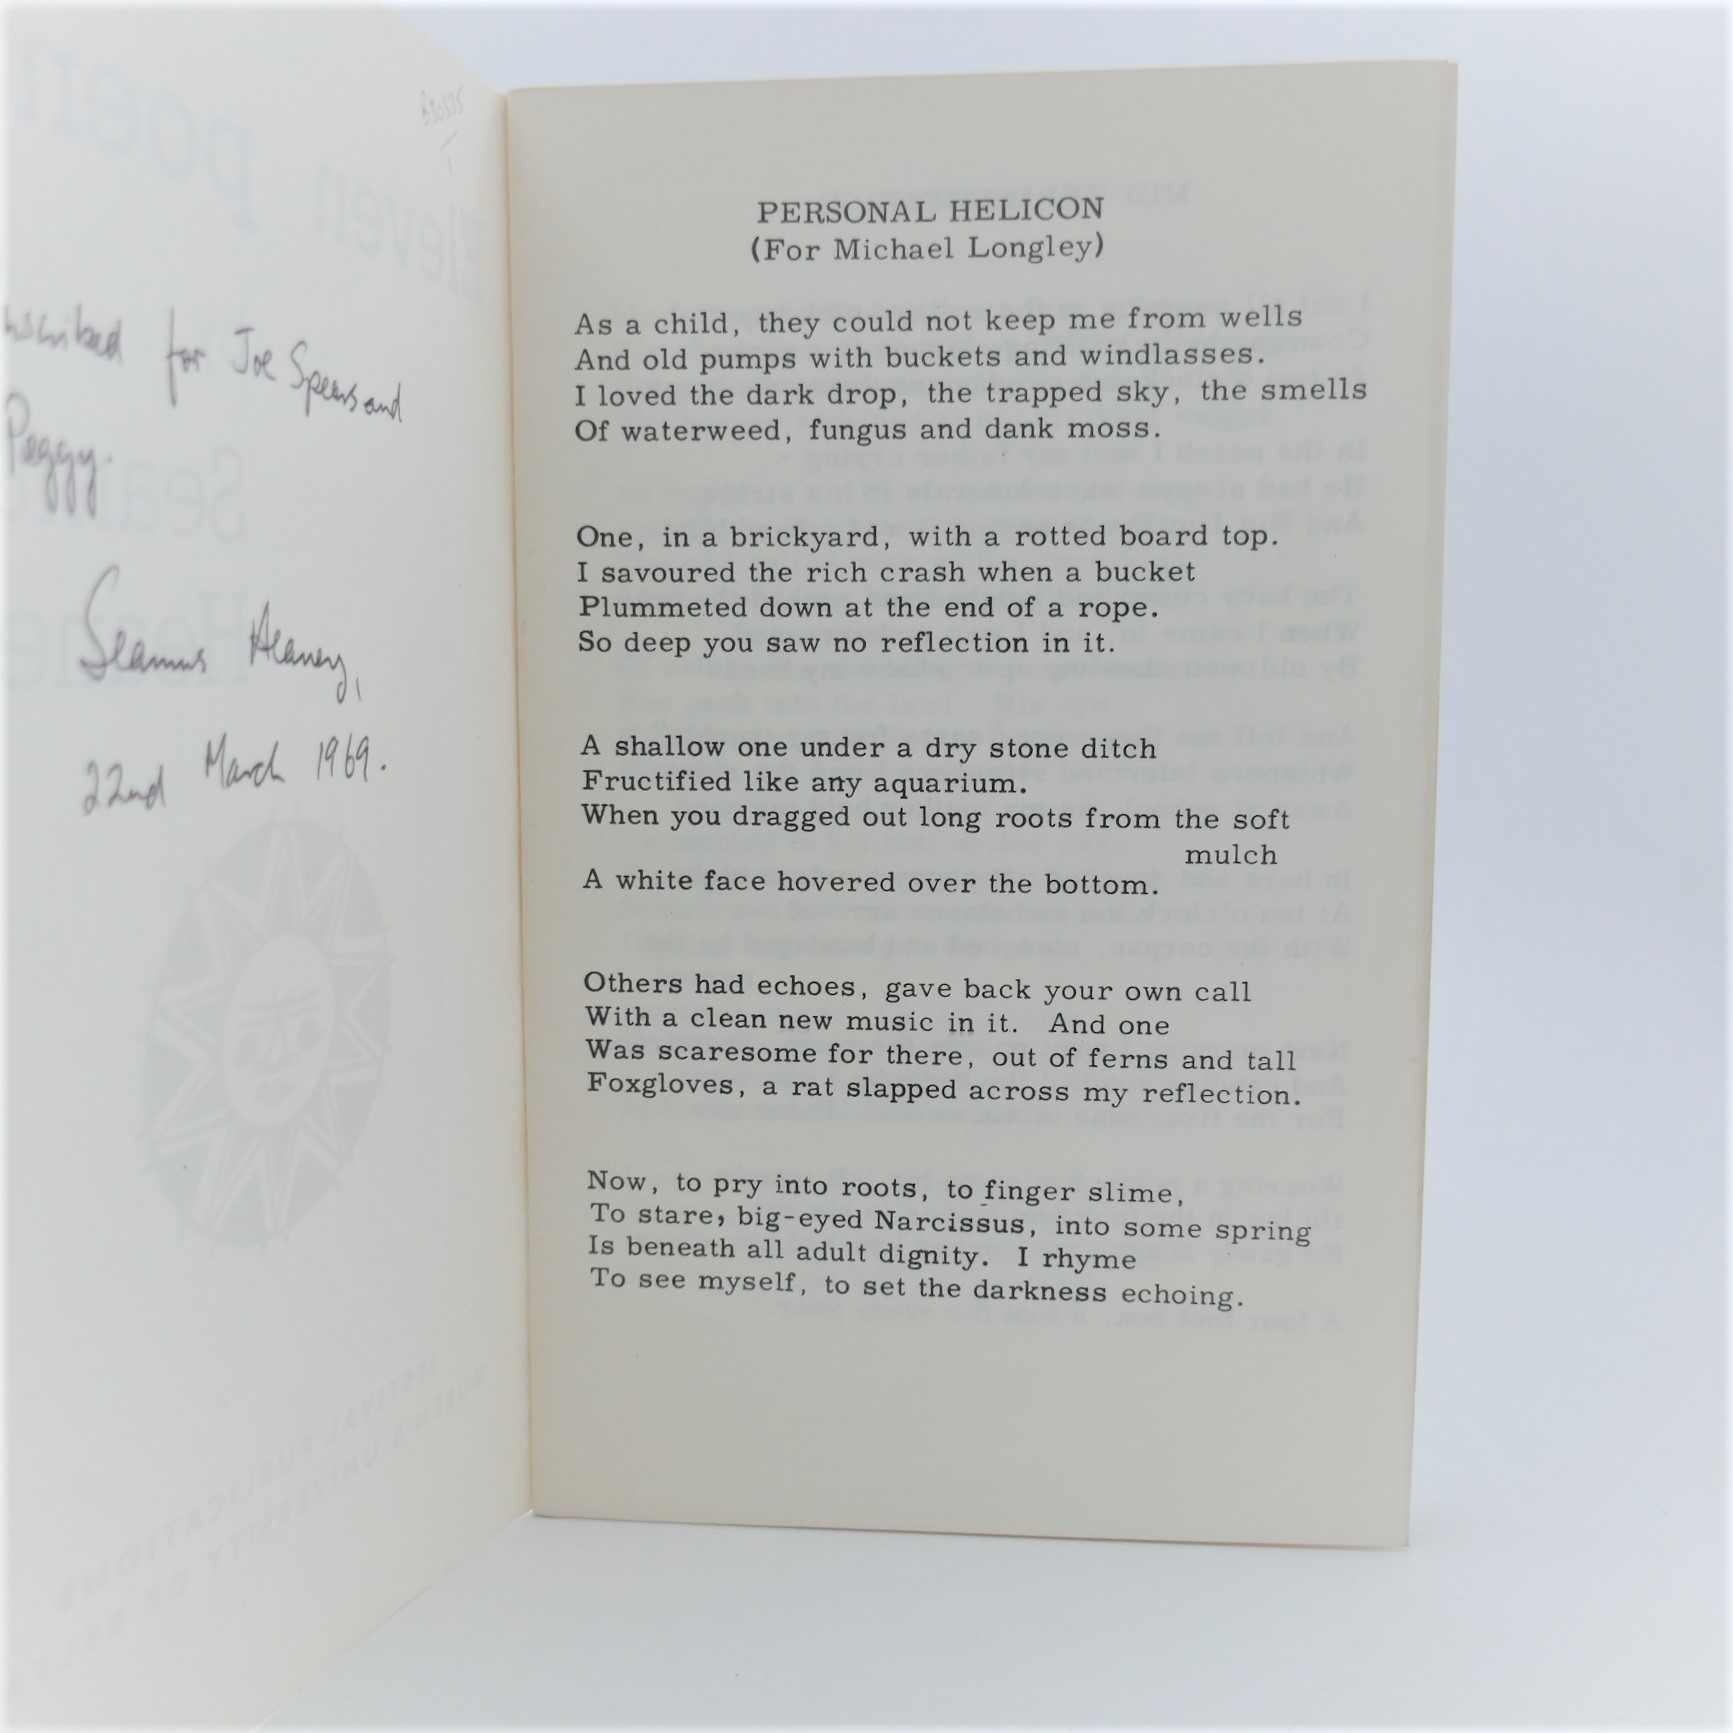 nscribed for Joe Spears and
Peggy.
Seamus Heaney,
22nd March 1969.
PERSONAL HELICON
(For Michael Longley)
As a child, they could not keep me from wells
And old pumps with buckets and windlasses.
I loved the dark drop, the trapped sky, the smells
Of waterweed, fungus and dank moss.
One, in a brickyard, with a rotted board top.
I savoured the rich crash when a bucket
Plummeted down at the end of a rope.
So deep you saw no reflection in it.
A shallow one under a dry stone ditch
Fructified like any aquarium.
When you dragged out long roots from the soft
mulch
A white face hovered over the bottom.
Others had echoes, gave back your own call
With a clean new music in it. And one
Was scaresome for there, out of ferns and tall
Foxgloves, a rat slapped across my reflection.
Now, to pry into roots, to finger slime,
To stare, big-eyed Narcissus, into some spring
Is beneath all adult dignity. I rhyme
To see myself, to set the darkness echoing.